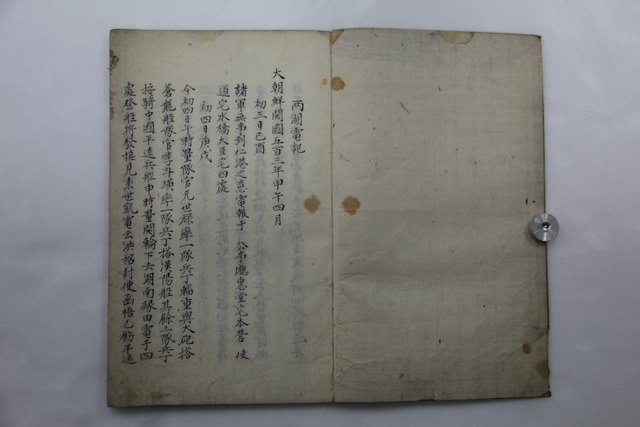 兩湖電記
大朝鮮開國五百三年甲午四月
初三日己酉
諸軍無事到仁港之意電報于 公事廳惠堂宅本營 使
道宅水橋大臣宅四處
初四日庚戌
今初四日午時量隊官元世祿率一隊兵丁輜重與大砲搭
蒼龍船隊官李斗璜率一隊兵丁搭漢陽船其餘三隊兵丁
接騎中國平遠兵船申時量開輪下去湖南緣由電于四
處登船將發接見袁世凱電去洪招討使函悟已飭平遠